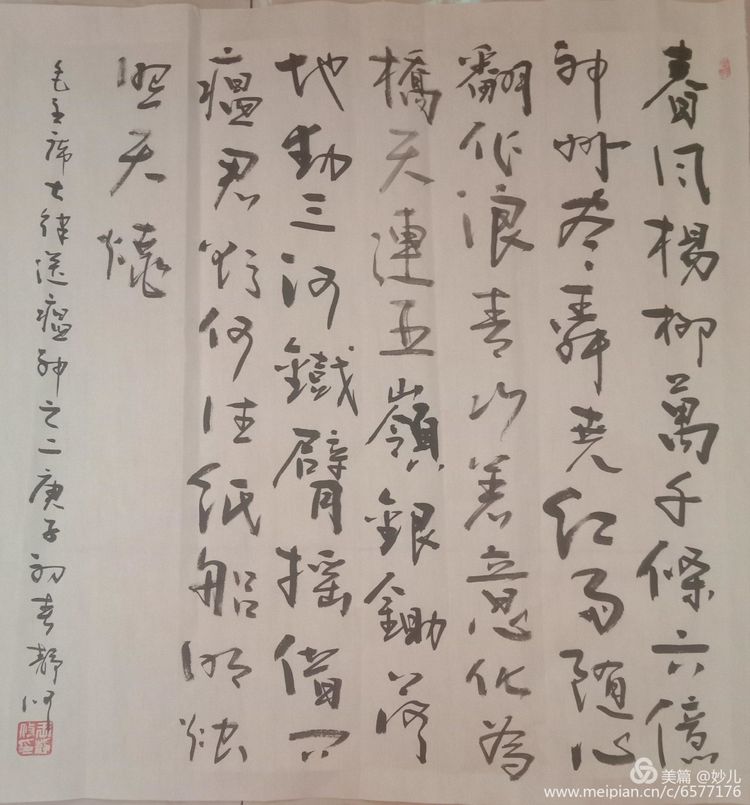 春风楊柳萬千條六億
神州尽舜尧红雨随心
翻作浪青山着意化為
橋天連五嶺銀鋤落
地动三河鐵臂摇借问
瘟君欲何往纸船明烛
照天燒
毛主席七律送瘟神之二庚子初春静
美篇 @妙儿
www.meipian.cn/c/6577176